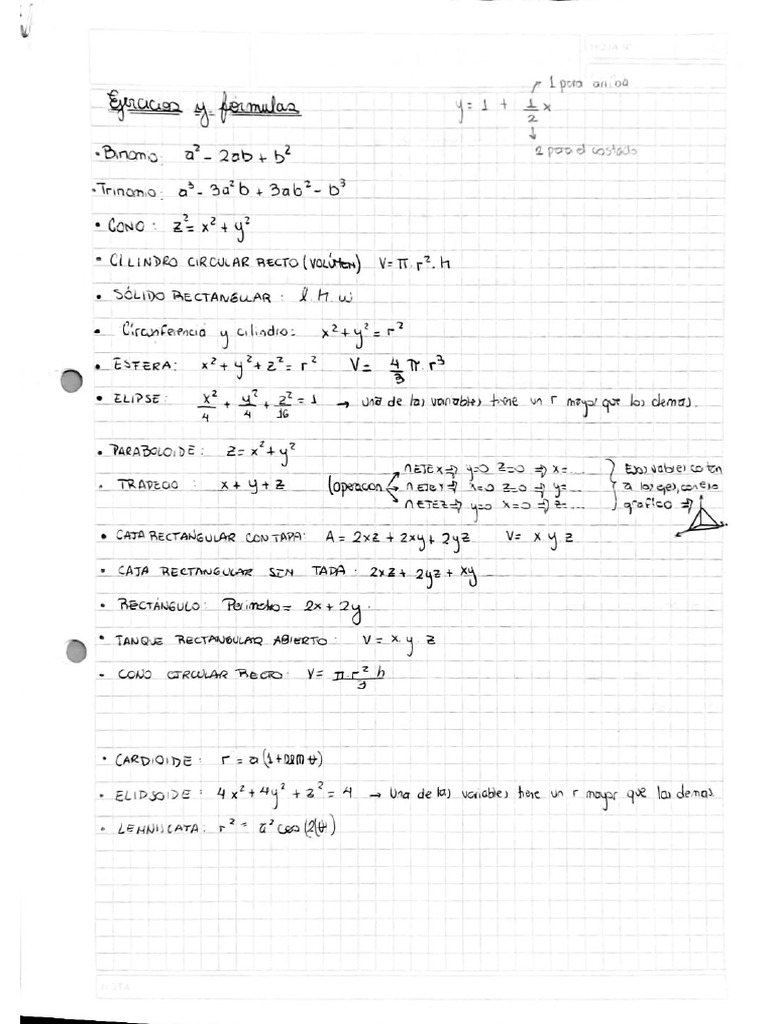 HOJA N°
Ejercicios y fórmulas
y = 1 + 1/2 x
1 para arriba
2 para el costado
• Binomio: a² - 2ab + b²
• Trinomio: a³ - 3a²b + 3ab² - b³
• CONO: z² = x² + y²
• CILINDRO CIRCULAR RECTO (VOLÚMEN) V = π. r². h
• SÓLIDO RECTANGULAR: l. h. w
• Circunferencia y cilindro: x² + y² = r²
• ESFERA: x² + y² + z² = r² V = 4/3 π. r³
• ELIPSE: x²/4 + y²/4 + z²/16 = 1 → una de las variables tiene un r mayor que las demas.
• PARABOLOIDE: z = x² + y²
• TRAPECIO: x + y + z (operacion
⋂ EJE X ⇒ y=0 z=0 ⇒ x=...
⋂ EJE Y ⇒ x=0 z=0 ⇒ y=...
⋂ EJE Z ⇒ y=0 x=0 ⇒ z=...
Esos valores cortan
a los ejes, con eso
grafico ⇒
• CAJA RECTANGULAR CON TAPA: A = 2xz + 2xy + 2yz V = x. y. z
• CAJA RECTANGULAR SIN TAPA: 2xz + 2yz + xy
• RECTÁNGULO: Perimetro = 2x + 2y.
• TANQUE RECTANGULAR ABIERTO: V = x. y. z
- CONO CIRCULAR RECTO: V = π. r² h/3
• CARDIOIDE: r = a(1+sen θ)
• ELIPSOIDE: 4x² + 4y² + z² = 4 → una de las variables tiene un r mayor que las demas
• LEMNISCATA: r² = a² cos(2(θ)
NOTA